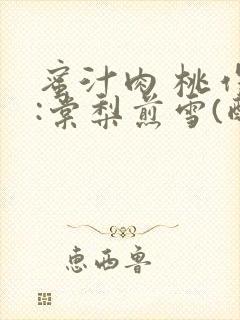 蜜汁肉桃作
:棠梨煎雪(
惠西鲁